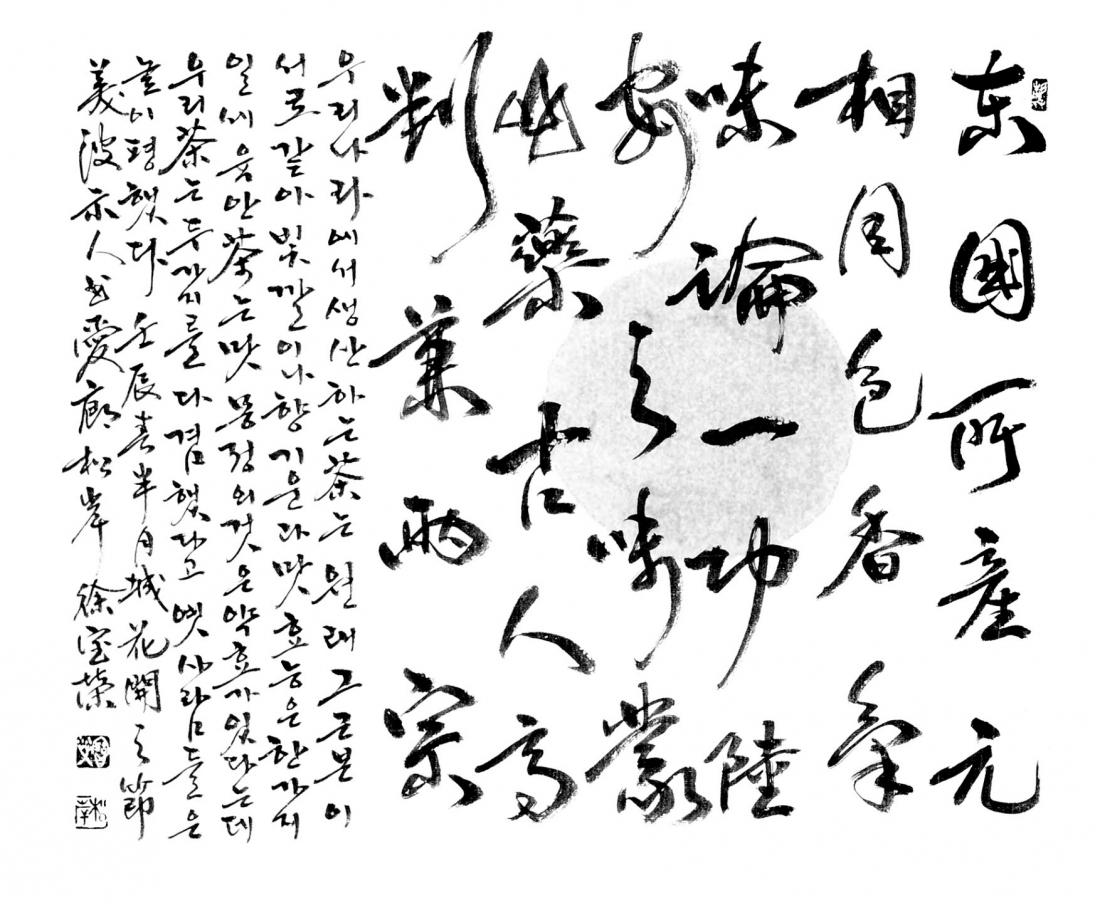 東國所産元
相同色香氣
味論一功陸
安之味蒙
山藥古人高
判兼兩宗
우리나라에서 생산하는 茶는 원래 그 근본이
서로 같아 빛깔이나 향 기운과 맛 효능은 한가지
일세 육안茶는 맛 몽정의 것은 약효가 있다는데
우리茶는 두가지를 다 겸했다고 옛사람들은
높이 평했다 壬辰春半月城花開之節
人 愛廊松岸 徐宝榮